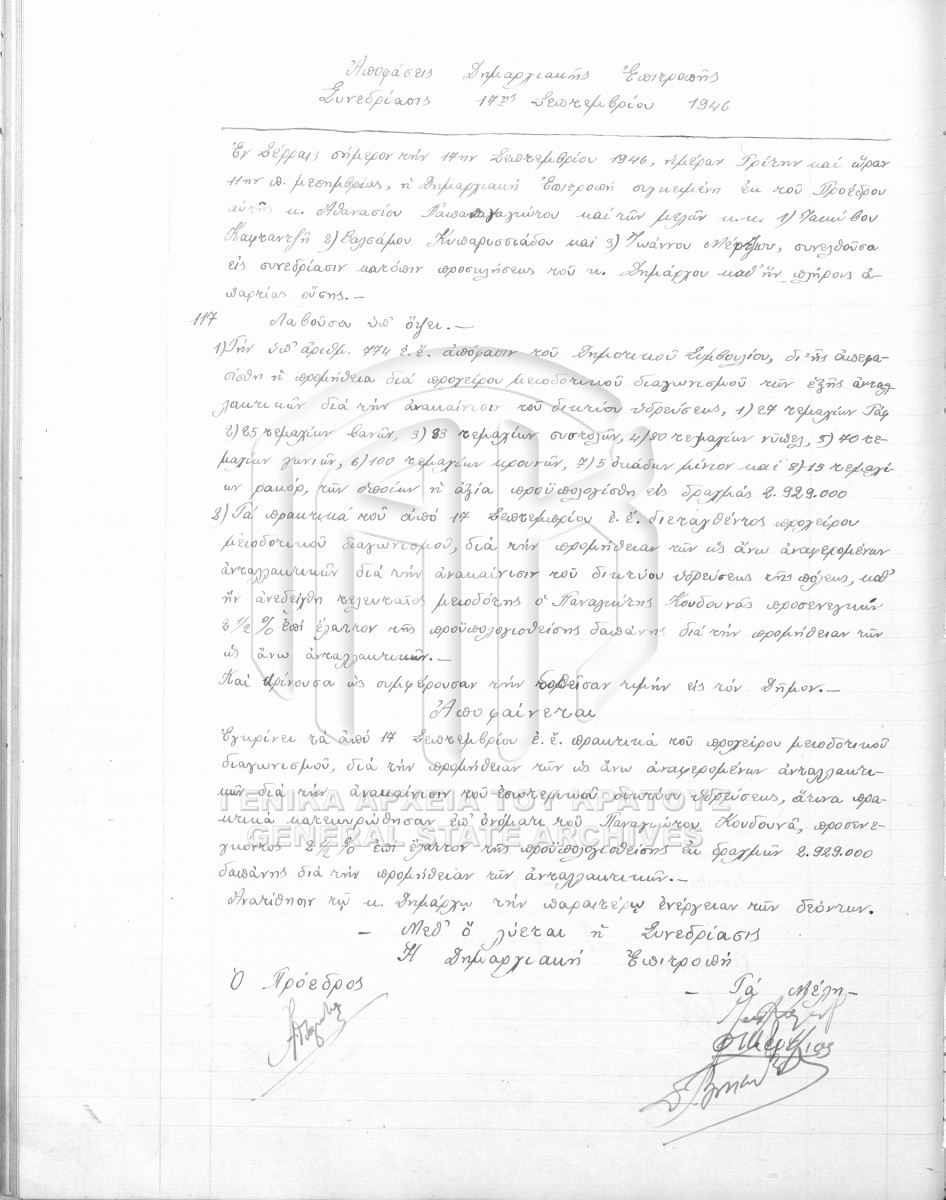 Ἀποφάσεις Δημαρχιακῆς Ἐπιτροπῆς
Συνεδρίασις 17ης Σεπτεμβρίου 1946
Ἐν Σέρραις σήμερον τήν 17ην Σεπτεμβρίου 1946, ἡμέραν Τρίτην καί ὥραν
11ην π. μεσημβρίας, ἡ Δημαρχιακή Ἐπιτροπή συγκειμένη ἐκ τοῦ Προέδρου
αὐτῆς κ. Ἀθανασίου Παπαπαναγιώτου καί τῶν μελῶν κ.κ. 1) Ἰακώβου
Καφταντζῆ 2) Βαλσάμου Κυπαρισσιάδου καί 3) Ἰωάννου Μέρτζιου, συνελθοῦσα
εἰς συνεδρίασιν κατόπιν προσκλήσεως τοῦ κ. Δημάρχου καθ' ἥν πλήρους ἀ-
παρτίας οὔσης.—
117 Λαβοῦσα ὑπ' ὄψει.—
1) Τήν ὑπ' ἀριθμ. 774 ἐ.ἔ. ἀπόφασιν τοῦ Δημοτικοῦ Συμβουλίου, δι' ἧς ἀπεφα-
σίσθη ἡ προμήθεια διά προχείρου μειοδοτικοῦ διαγωνισμοῦ τῶν ἑξῆς ἀνταλ-
λακτικῶν διά τήν ἀνακαίνισιν τοῦ δικτύου ὑδρεύσεως, 1) 27 τεμαχίων Τάφ
2) 25 τεμαχίων βανῶν, 3) 33 τεμαχίων συστολῶν, 4) 80 τεμαχίων νῦπελ, 5) 70 τε-
μαχίων γωνιῶν, 6) 100 τεμαχίων κρουνῶν, 7) 5 ὀκάδων μίνιον καί 8) 15 τεμαχί-
ων ρακόρ, τῶν ὁποίων ἡ ἀξία προϋπολογίσθη εἰς δραχμάς 2.929.000
2) Τά πρακτικά τοῦ ἀπό 17 Σεπτεμβρίου ἐ.ἔ. διεταχθέντος προχείρου
μειοδοτικοῦ διαγωνισμοῦ, διά τήν προμήθειαν τῶν ὡς ἄνω ἀναφερομένων
ἀνταλλακτικῶν διά τήν ἀνακαίνισιν τοῦ δικτύου ὑδρεύσεως τῆς πόλεως, καθ'
ἥν ἀνεδείχθη τελευταῖος μειοδότης ὁ Παναγιώτης Κουδουνᾶς προσενεγκών
2 1/2 % ἐπί ἔλαττον τῆς προϋπολογισθείσης δαπάνης διά τήν προμήθειαν τῶν
ὡς ἄνω ἀνταλλακτικῶν.—
Καί κρίνουσα ὡς συμφέρουσαν τήν δοθεῖσαν τιμήν εἰς τόν Δῆμον.—
Ἀποφαίνεται
Ἐγκρίνει τά ἀπό 17 Σεπτεμβρίου ἐ.ἔ. πρακτικά τοῦ προχείρου μειοδοτικοῦ
διαγωνισμοῦ, διά τήν προμήθειαν τῶν ὡς ἄνω ἀναφερομένων ἀνταλλακτι-
κῶν διά τήν ἀνακαίνισιν τοῦ ἐσωτερικοῦ δικτύου ὑδρεύσεως, ἅτινα πρα-
κτικά κατεκυρώθησαν ἐπ' ὀνόματι τοῦ Παναγιώτου Κουδουνᾶ, προσενε-
γκόντος 2 1/2 % ἐπί ἔλαττον τῆς προϋπολογισθείσης ἐκ δραχμῶν 2.929.000
δαπάνης διά τήν προμήθειαν τῶν ἀνταλλακτικῶν.—
Ἀνατίθησιν τῷ κ. Δημάρχῳ τήν παραιτέρῳ ἐνέργειαν τῶν δεόντων.
— Μεθ' ὅ λύεται ἡ Συνεδρίασις
Ἡ Δημαρχιακή Ἐπιτροπή
Ὁ Πρόεδρος — Τά Μέλη—
ΓΕΝΙΚΑ ΑΡΧΕΙΑ ΤΟΥ ΚΡΑΤΟΥΣ
GENERAL STATE ARCHIVES